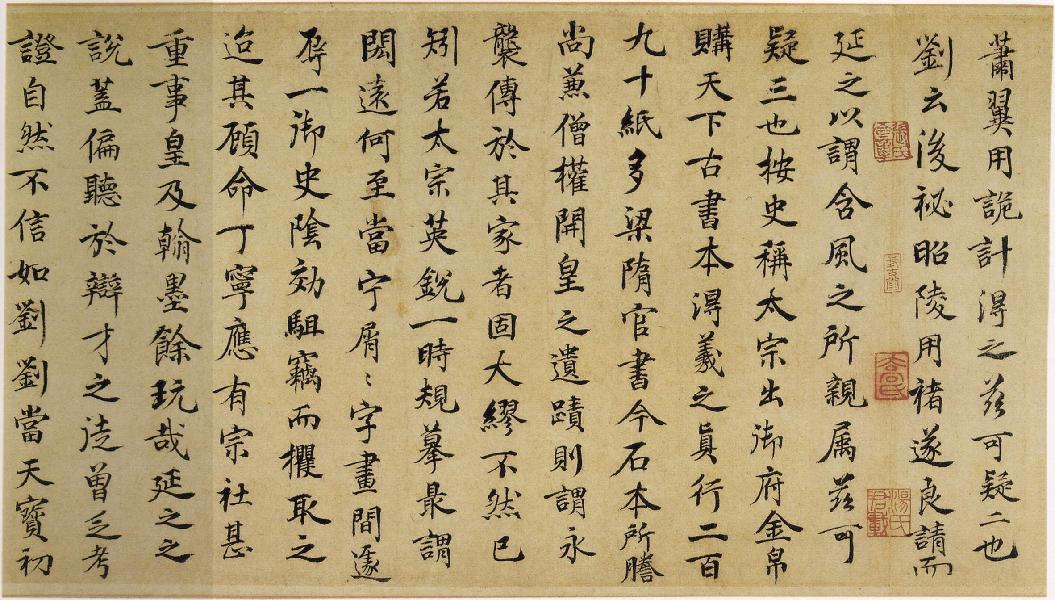 蕭翼用詭計得之茲可疑二也
劉云後祕昭陵用褚遂良請而
延之以謂含風之所親属茲可
疑三也按史稱太宗出御府金帛
購天下古書本淂羲之真行二百
九十紙多梁隋官書今石本所謄
尚蒹僧權開皇之遺蹟則謂永
襲傳於其家者固大繆不然已
矧若太宗英銳一時規摹最謂
閎遠何至當宁屑〻字畫間遽
辱一御史陰効駔竊而欋取之
迨其顧命丁寧應有宗社甚
重事皇及翰墨餘玩哉延之之
說蓋偏聽於辯才之徒曾乏考
證自然不信如劉劉當天寶初
湯氏
君載